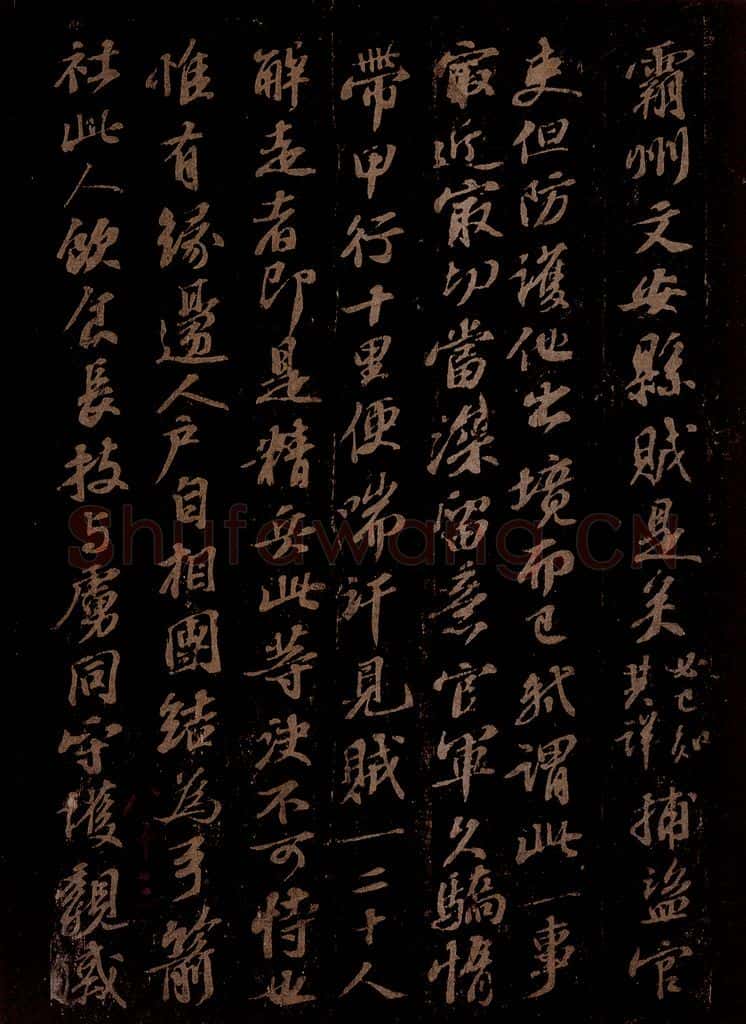 霸州文安縣賊是矣必已知其詳捕盜官
吏但防護他出境而已軾謂此一事
最近最切當深留意官軍久驕惰
帶甲行十里便喘汗見賊一二十人
解走者即是精兵此等決不可恃也
惟有緣邊人戶自相團結為弓箭
社此人飲食長技与虜同守護親戚
Shufawang.CN